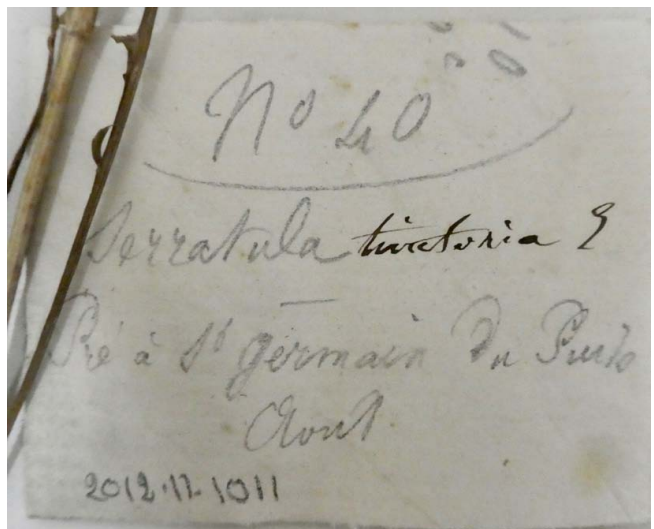 No 40
Serratula tinctoria L
Pré à St germain du Puits
Aout.
2012.11.1011